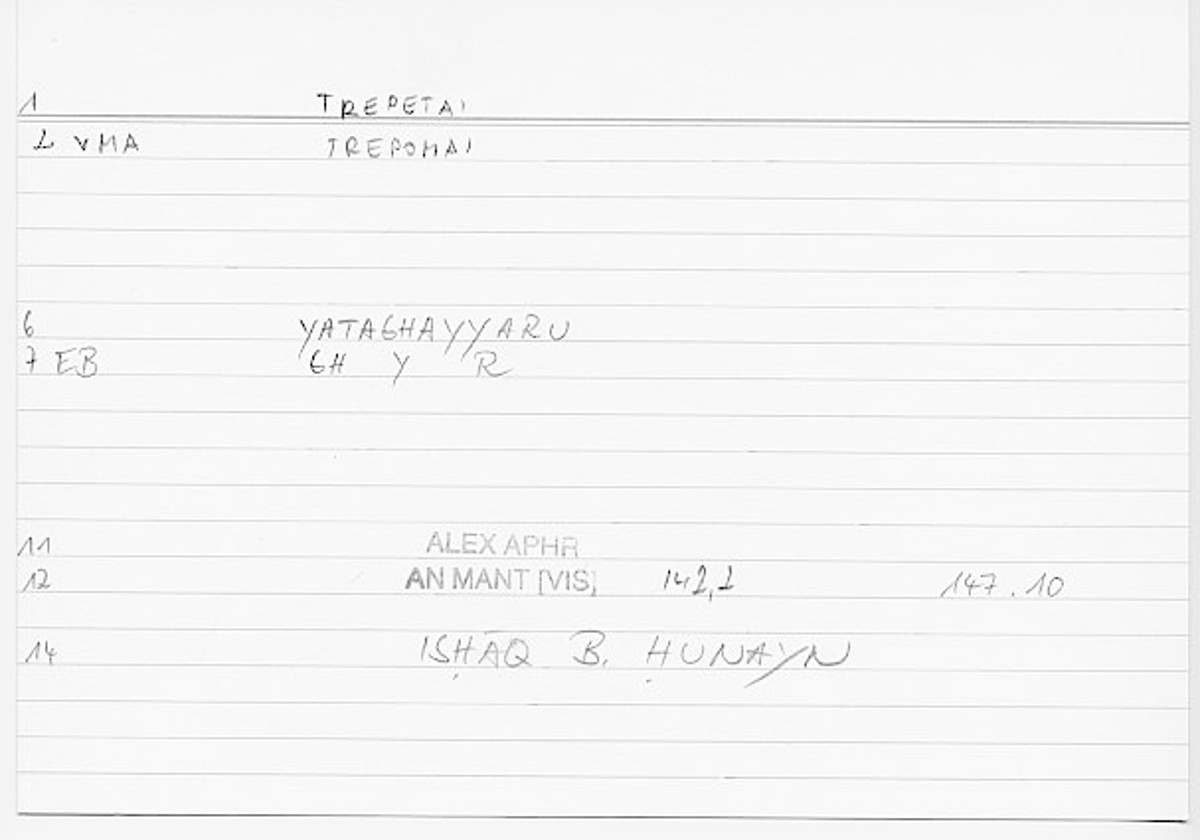 1 TREPETAI
2 VMA TREPOMAI
6 YATAGHAYYARU
7 EB GH Y R
11 ALEX APHR
12 AN MANT [VIS] 142,2 147.10
14 ISḤĀQ B. ḤUNAYN